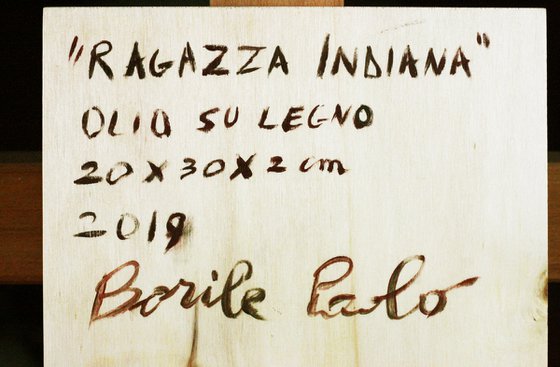 "RAGAZZA INDIANA"
OLIO SU LEGNO
20X30X2 cm
2019
Borile Paolo